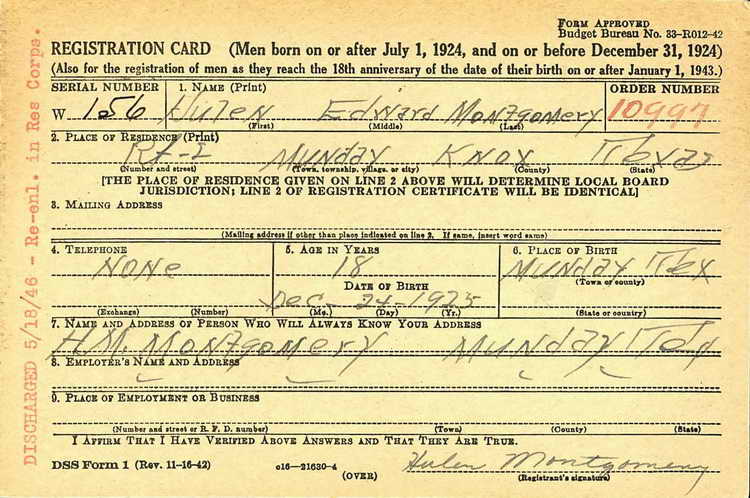 FORM APPROVED
Budget Bureau No. 33-R012-42
REGISTRATION CARD (Men born on or after July 1, 1924, and on or before December 31, 1924)
(Also for the registration of men as they reach the 18th anniversary of the date of their birth on or after January 1, 1943.)
SERIAL NUMBER 1. NAME (Print) ORDER NUMBER
W 156 Hulen Edward Montgomery 10997
(First) (Middle) (Last)
2. PLACE OF RESIDENCE (Print)
Rt-1 Munday Knox Texas
(Number and street) (Town, township, village, or city) (County) (State)
[THE PLACE OF RESIDENCE GIVEN ON LINE 2 ABOVE WILL DETERMINE LOCAL BOARD
JURISDICTION; LINE 2 OF REGISTRATION CERTIFICATE WILL BE IDENTICAL]
3. MAILING ADDRESS
(Mailing address if other than place indicated on line 2. If same, insert word same)
4. TELEPHONE 5. AGE IN YEARS 6. PLACE OF BIRTH
None 18 Munday Tex
DATE OF BIRTH (Town or county)
Dec - 24-1925
(Exchange) (Number) (Mo.) (Day) (Yr.) (State or country)
7. NAME AND ADDRESS OF PERSON WHO WILL ALWAYS KNOW YOUR ADDRESS
H.M. Montgomery Munday Tex
8. EMPLOYER'S NAME AND ADDRESS
9. PLACE OF EMPLOYMENT OR BUSINESS
(Number and street or R. F. D. number) (Town) (County) (State)
I AFFIRM THAT I HAVE VERIFIED ABOVE ANSWERS AND THAT THEY ARE TRUE.
DSS Form 1 (Rev. 11-16-42) c16—21630-4 Hulen Montgomery
(OVER) (Registrant's signature)
DISCHARGED 5/18/46 - Re-enl. in Res Corps.